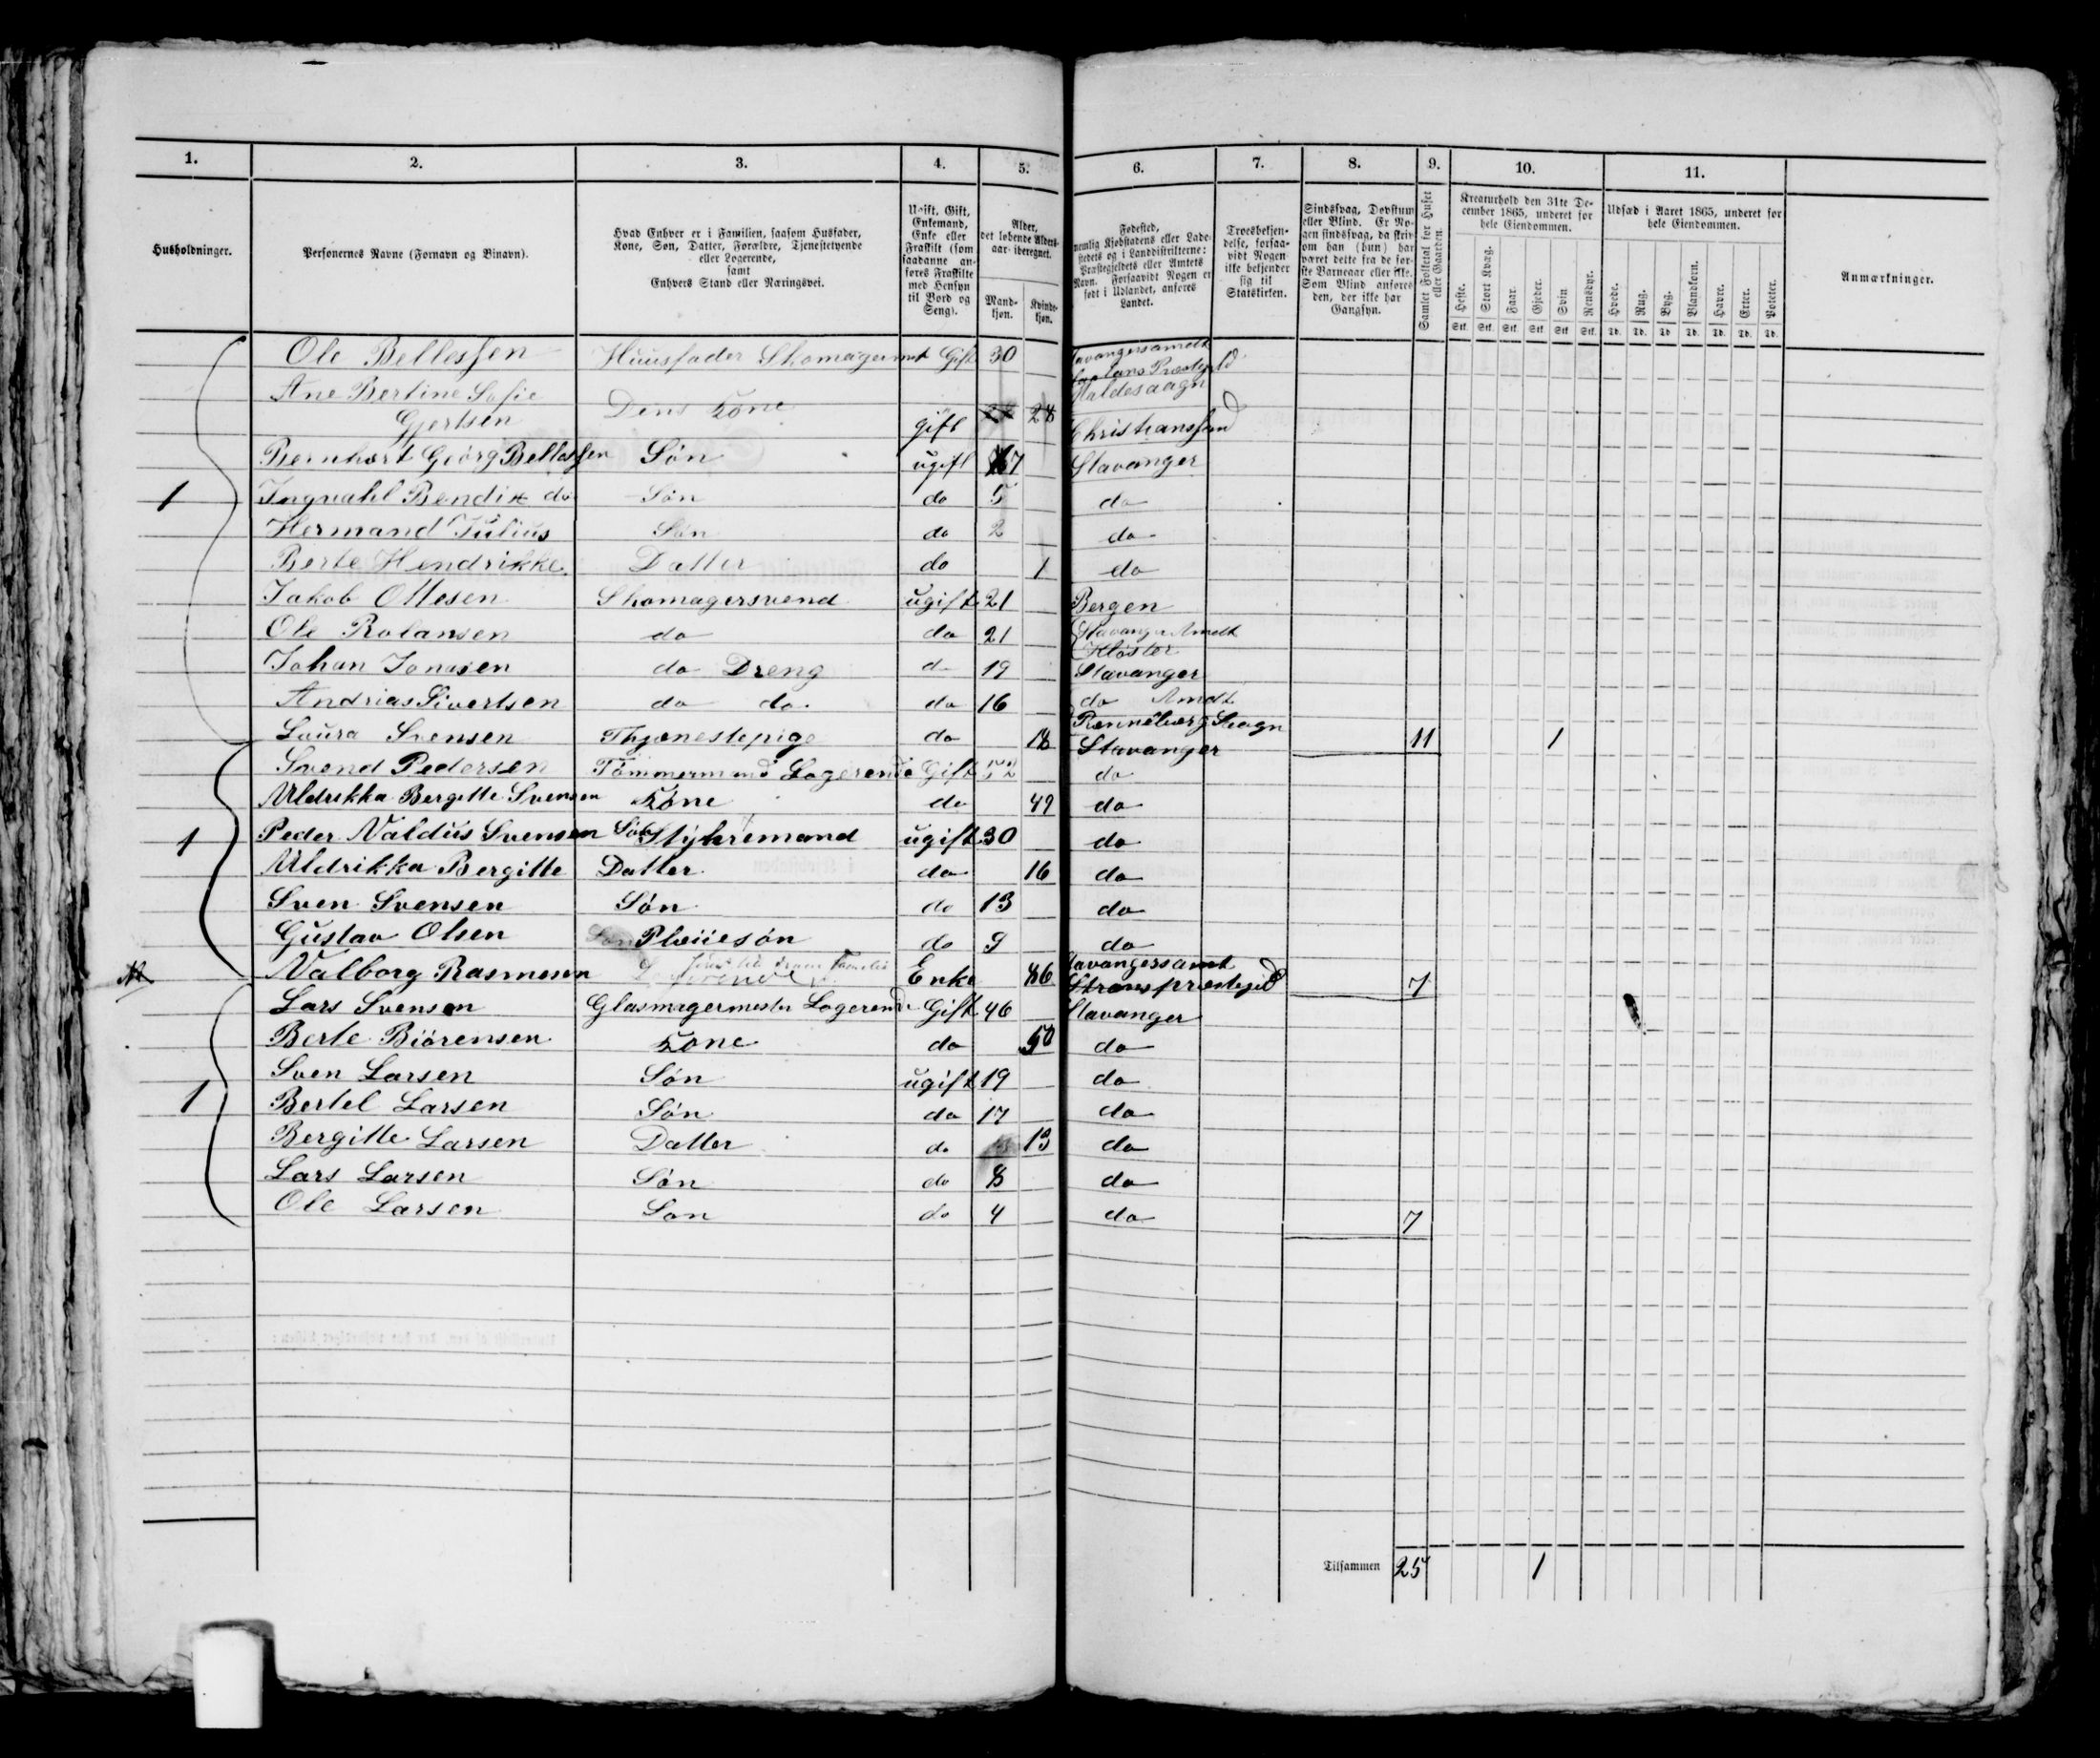 1. 2. 3. 4. 5. 6. 7. 8. 9. 10. 11.
Husholdninger.
Personernes Navne (Fornavn og Binavn).
Hvad Enhver er i Familien, saasom Husfader,
Kone, Søn, Datter, Forældre, Tjenestetyende
eller Logerende,
samt
Enhvers Stand eller Næringsvei.
Ugift, Gift,
Enkemand,
Enke eller
Fraskilt (som
saadanne an-
føres Fraskilte
med Hensyn
til Bord og
Seng).
Alder,
det løbende Alders-
aar iberegnet.
Mand-
kjøn.
Kvinde-
kjøn.
Fødested,
nemlig Kjøbstadens eller Lade-
stedets og i Landdistrikterne:
Præstegjeldets eller Amtets
Navn. Forsaavidt Nogen er
født i Udlandet, anføres
Landet.
Troesbekjen-
delse, forsaa-
vidt Nogen
ikke bekjender
sig til
Statskirken.
Sindssvag, Døvstum
eller Blind. Er No-
gen sindssvag, da skriv
om han (hun) har
været dette fra de før-
ste Barneaar eller ikke.
Som Blind anføres
den, der ikke har
Gangsyn.
Samlet Folketal for Huset
eller Gaarden.
Kreaturhold den 31te De-
cember 1865, underet for
hele Eiendommen.
Heste. Stort Kvæg. Faar. Gjeder. Svin Rensdyr.
Stk. Stk. Stk. Stk. Stk. Stk.
Udsæd i Aaret 1865, underet for
hele Eiendommen.
Hvede. Rug. Byg. Blandkorn. Havre. Erter. Poteter.
Td. Td. Td. Td. Td. Td. Td.
Anmærkninger.
Ole Bellessen Huusfader Skomagermst Gift 30 Stavangersamdt
Præstegjeld
Ane Bertine Sofie
Gjertsen Dens Kone gift 28 Christianssand
Bernhart Geörg Bellessen Søn ugift 7 Stavanger
1 Ingvahl Bendix do Søn do 5 do
Hermand Julius Søn do 2 do
Berte Hendrikke Datter do 1 do
Jakob Ottesen Skomagersvend ugift 21 Bergen
Ole Rolansen do do 21 Stavanger Amdt
Kloster
Johan Jonasen do Dreng do 19 Stavanger
Andrias Sivertsen do do do 16 do Amdt
Rennebærg Sragn
Laura Svensen Thjænestepige do 18 Stavanger 11 1
Svend Pedersen Tømmermand Logerende Gift 52 do
Uldrikka Bergitte Svensen Kone do 49 do
1 Peder Valdus Svensen Søn Styhremand ugift 30 do
Uldrikka Bergitte Datter do 16 do
Sven Svensen Søn do 13 do
Gustav Olsen Pleiiesøn do 9 do
Valborg Rasmusen Enke 86 Stavangersamt
7
Lars Svensen Glasmagermester Logerende Gift 46 Stavanger
Berte Biörensen Kone do 50 do
Sven Larsen Søn ugift 19 do
1 Bertel Larsen Søn do 17 do
Bergitte Larsen Datter do 13 do
Lars Larsen Søn do 8 do
Ole Larsen Søn do 4 do 7
Tilsammen 25 1